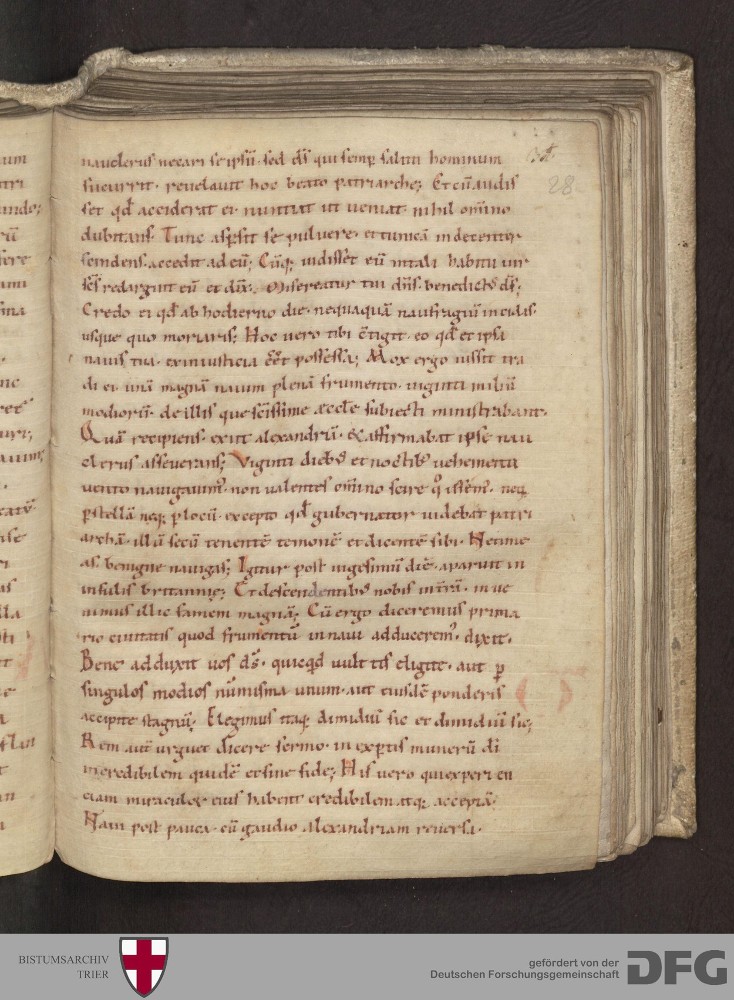 nauclerus necari se ipsū. sed ds̄ qui semꝑ saluti hominum
sucurrit. reuelauit hoc beato patriarche; Et cū audis
set qd̄ acciderat ei. nuntiat ut ueniat. nihil om̄ino
dubitans. Tunc aspsit se puluere. et tunicā indecenter
scindens. accedit ad eū; Cūq; uidiss&t eū in tali habitu uir
sc̄s redarguit eū et dix̄.
Credo ei qd̄ ab hodierno die. nequaquā naufragiū incidis.
usque quo moriaris; Hoc uero tibi c̄tigit. eo qd̄ et ipsa
nauis tua. ex iniusticia possessa; Mox ergo iussit tra
di ei unā magnā nauim plenā frumento. uiginti miliū
modiorū. de illis que sc̄issime æccle subiecti ministrabant.
Quā recipiens. exiit alexandriā. & affirmabat ipse nau
clerus asseuerans; Viginti dieb; et noctib; uehementi
uento nauigauim᾽. non ualentes om̄ino scire q̊ issem᾽. neq;
ꝑ stellā neq; ꝑ locū. excepto qd̄ gubernator uidebat patri
archā. illū secū tenentē temonē et dicentē sibi. Ne time
as. benigne nauigas; Igitur post uigesimū diē. aparuit in
insulis britannię; Et descendentib; nobis in t̄rā. inue
nimus illic famem magnā; Cū ergo diceremus prima
rio ciuitatis quod frumentū in naui adducerem᾽. dixit.
Bene adduxit uos ds̄. quicq̄d uultis eligite. aut ꝑ
singulos modios nūmisma unum. aut eiusdē ponderis
accipite stagnū; Elegimus itaq; dimidiū sic et dimidiū sic;
Rem autē urguet dicere sermo. in exꝑtis munerū di
incredibilem quidē et sine fide; His uero qui experien
ciam miraculor̄ eius habent credibilem atq; acceptā.
Nam post pauca. cū gaudio alexandriam reuersi.
28
BISTUMSARCHIV
TRIER
gefördert von der
Deutschen Forschungsgemeinschaft
DFG